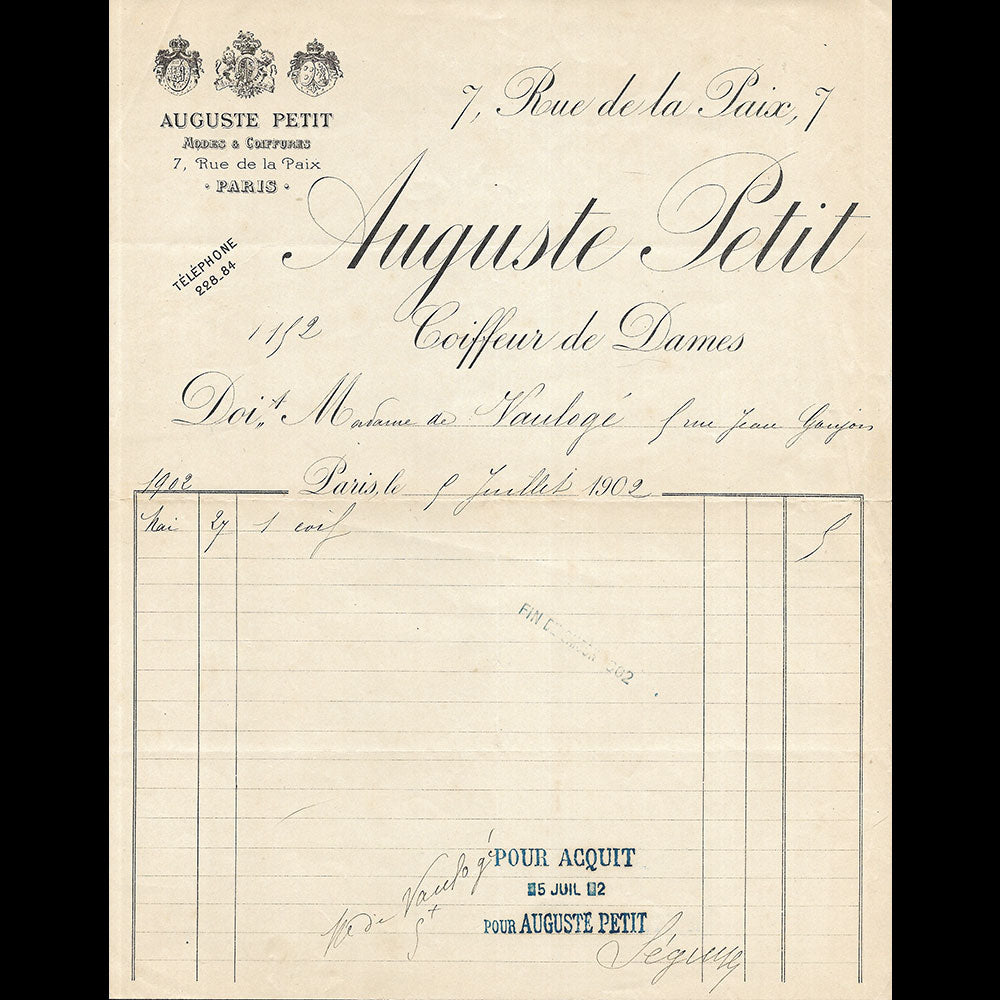 AUGUSTE PETIT
MODES & COIFFURES
7, Rue de la Paix
· PARIS ·
7, Rue de la Paix, 7
Auguste Petit
TÉLÉPHONE
228-84
1152
Coiffeur de Dames
Doit Madame de Vaulogé 5 rue Jean Goujon
1902
Paris, le 5 Juillet 1902
Mai 27 1 coif 5
FIN DE
POUR ACQUIT
5 JUIL 2
POUR AUGUSTE PETIT
Me de Vaulogé
5